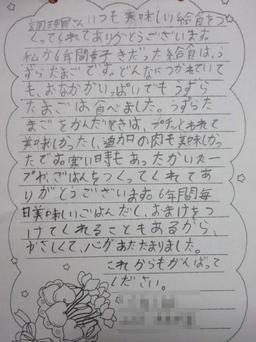 調理員さん いつも美味しい給食をつ
くってくれてありがとうございます。
私が6年間好きだった給食は、う
ずらたまごです。どんなにつかれていて
も、おなかがいっぱいでもうずら
たまごは食べました。うずらた
まごをかんだときは、プチッとわれて
美味しかったし、追加の肉も美味しかっ
たです。寒い日時もあったかいスー
プや、ごはんをつくってくれてあ
りがとうございます。6年間毎
日美味しいごはんだし、おまけをつ
けてくれることもあるから、
やさしくて、心があたたまりました。
これからもがんばって
ください。